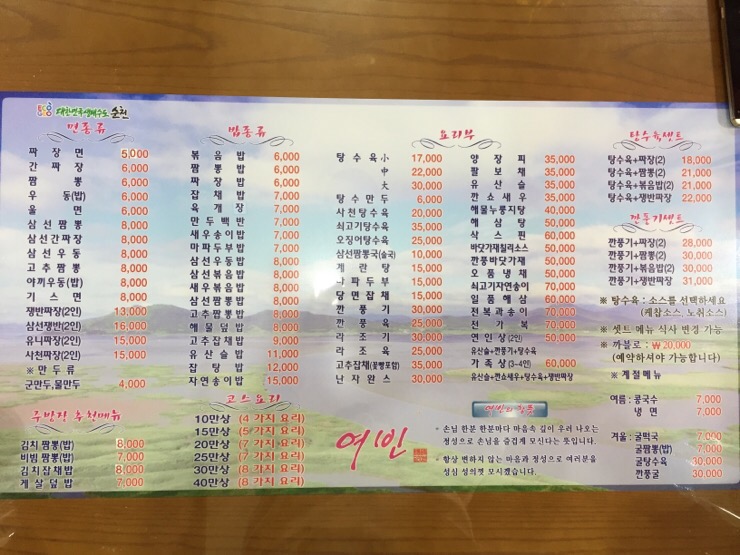 대한민국생태수도 순천
면종류
짜장면 5,000
간짜장 6,000
짬뽕 6,000
우동(밥) 6,000
울면 6,000
삼선짬뽕 8,000
삼선간짜장 8,000
삼선우동 8,000
고추짬뽕 8,000
야끼우동(밥) 8,000
기스면 8,000
쟁반짜장(2인) 13,000
삼선쟁반(2인) 16,000
유니짜장(2인) 15,000
사천짜장(2인) 15,000
※ 만두류
군만두,물만두 4,000
주방장 추천메뉴
김치짬뽕(밥) 8,000
비빔짬뽕(밥) 7,000
김치잡채밥 8,000
게살덮밥 7,000
밥종류
볶음밥 6,000
짬뽕밥 6,000
짜장밥 6,000
잡채밥 7,000
육개장 7,000
만두백반 7,000
새우송이밥 7,000
마파두부밥 7,000
삼선우동밥 8,000
삼선볶음밥 8,000
새우볶음밥 8,000
삼선짬뽕밥 8,000
고추짬뽕밥 8,000
해물덮밥 8,000
고추잡채밥 9,000
유산슬밥 11,000
잡탕밥 12,000
자연송이밥 15,000
코스요리
10만상 (4 가지 요리)
15만상 (5 가지 요리)
20만상 (7 가지 요리)
25만상 (7 가지 요리)
30만상 (8 가지 요리)
40만상 (8 가지 요리)
요리부
탕수육 小 17,000
中 22,000
大 30,000
탕수만두 6,000
사천탕수육 20,000
쇠고기탕수육 25,000
오징어탕수육 25,000
삼선짬뽕국(술국) 10,000
계란탕 15,000
마파두부 15,000
당면잡채 15,000
깐풍기 30,000
깐풍육 30,000
라조기 30,000
라조육 30,000
고추잡채(꽃빵포함) 35,000
난자완스 30,000
양장피 35,000
팔보채 35,000
유산슬 35,000
깐쇼새우 35,000
해물누룽지탕 40,000
해삼탕 50,000
삭스핀 50,000
바닷가재칠리소스 50,000
깐풍바닷가재 50,000
오품냉채 50,000
쇠고기자연송이 70,000
일품해삼 60,000
전복과송이 70,000
전가복 70,000
연인상(2인) 50,000
유산슬+깐풍기+탕수육
가족상(3~4인) 60,000
유산슬+깐쇼새우+탕수육+쟁반짜장
여빈
여빈의 강품
* 손님 한분 한분마다 마음속 깊이 우러 나오는
정성으로 손님을 즐겁게 모신다는 뜻입니다.
* 항상 변하지 않는 마음과 정성으로 여러분을
성심 성의껏 모시겠습니다.
탕수육셋트
탕수육+짜장(2) 18,000
탕수육+짬뽕(2) 21,000
탕수육+볶음밥(2) 21,000
탕수육+쟁반짜장 22,000
깐풍기셋트
깐풍기+짜장(2) 28,000
깐풍기+짬뽕(2) 30,000
깐풍기+볶음밥(2) 30,000
깐풍기+쟁반짜장 31,000
※ 탕수육 : 소스를 선택하세요
(케찹소스, 노취소스)
※ 셋트 메뉴 식사 변경 가능
※ 까블로 : ₩ 20,000
(예약하셔야 가능합니다)
※ 계절메뉴
여름 : 콩국수 7,000
냉면 7,000
겨울 : 굴떡국 7,000
굴짬뽕(밥) 7,000
굴탕수육 30,000
깐풍굴 30,000